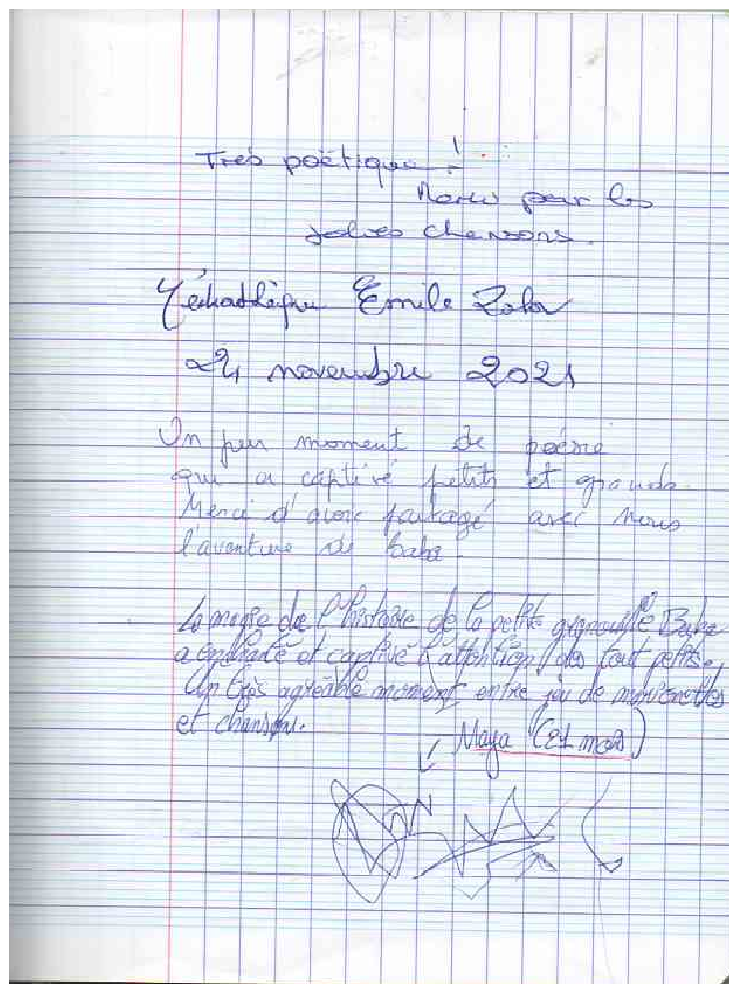 Très poëtique !
Merci pour les
jolies chansons.
Médiathèque Emile Zola
24 novembre 2021
Un pur moment de poésie
qui a captivé petits et grands.
Merci d'avoir partagé avec nous
l'aventure de Baba.
La magie de l'histoire de la petite grenouille Baba
a enchanté et captivé l'attention des tout petits.
Un très agréable moment entre jeu de marionnettes
et chanson.
Maya (21 mois)